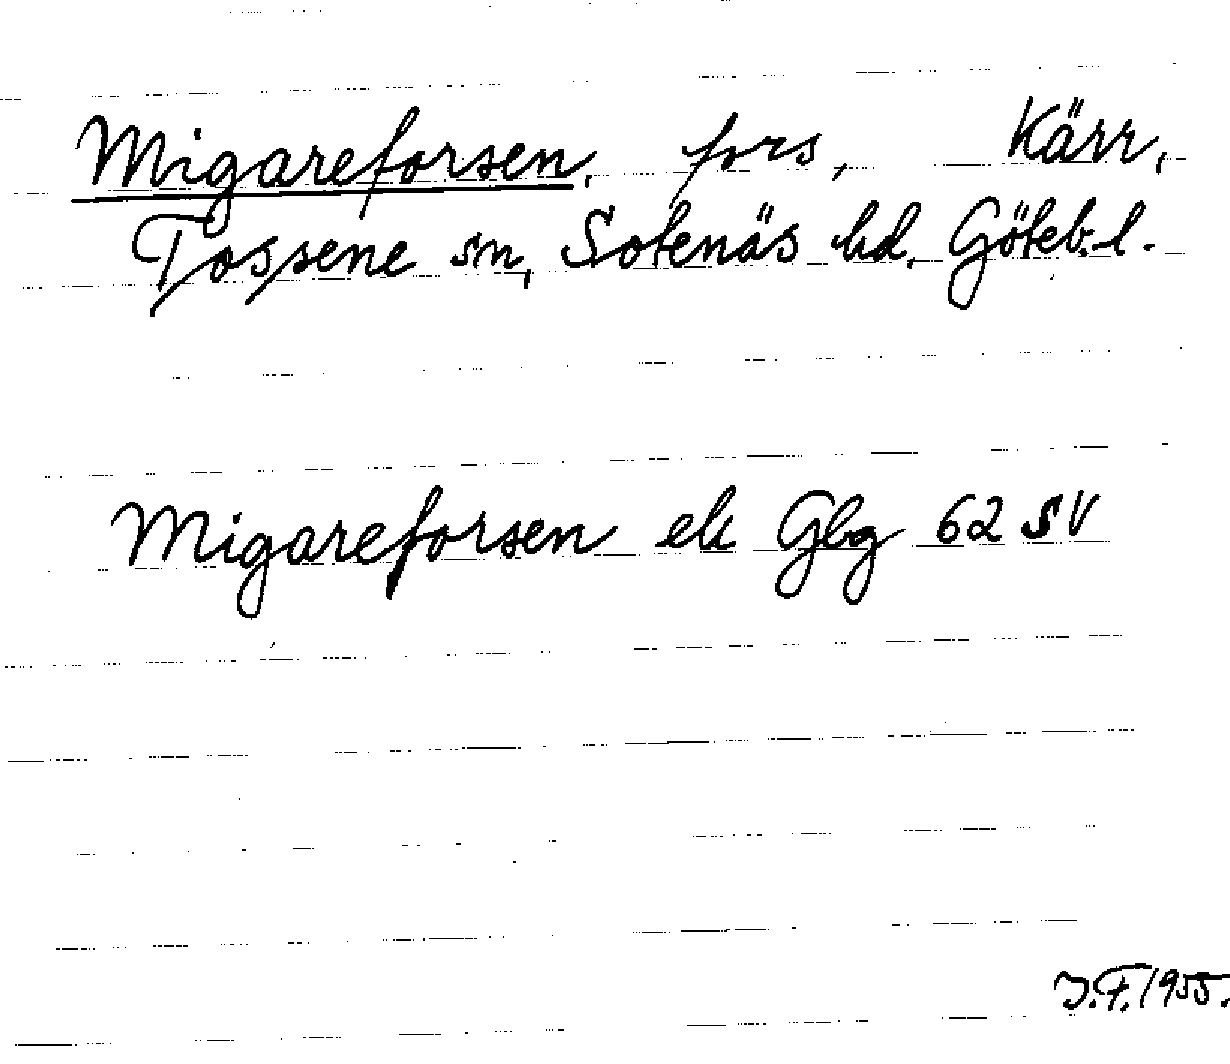 Migareforsen, fors, Kärr,
Tossene sn, Sotenäs hd, Göteb. l.
Migareforsen ek Gbg 62 SV
J.F. 1955.